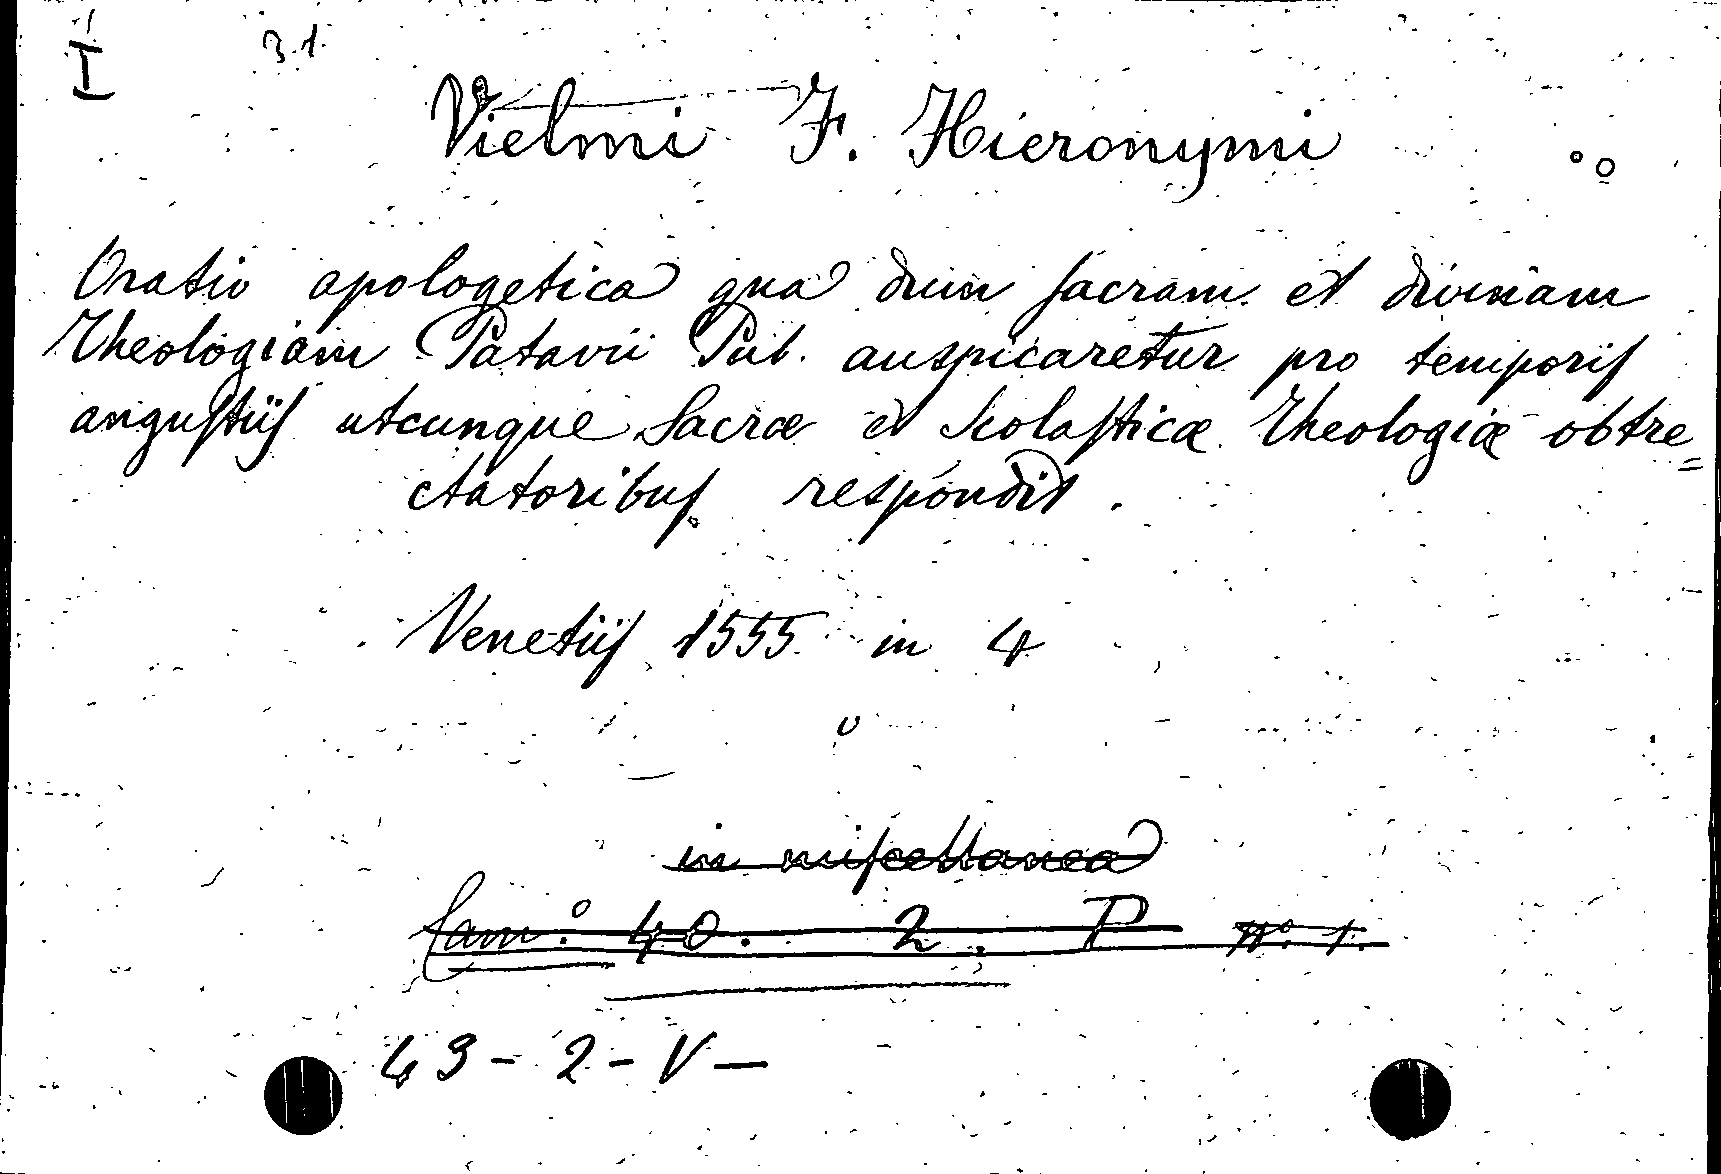 I 3.1.
Vielmi F. Hieronymi
Oratio apologetica qua dum sacram et divinam
Theologiam Patavii Pub. auspicaretur pro temporis
angustiis utcunque Sacræ et scolasticæ Theologiæ obtre=
ctatoribus respondit.
Venetiis 1555 in 4
in miscellanea
Cam: 40. 2. P N° 1.
43-2-V-